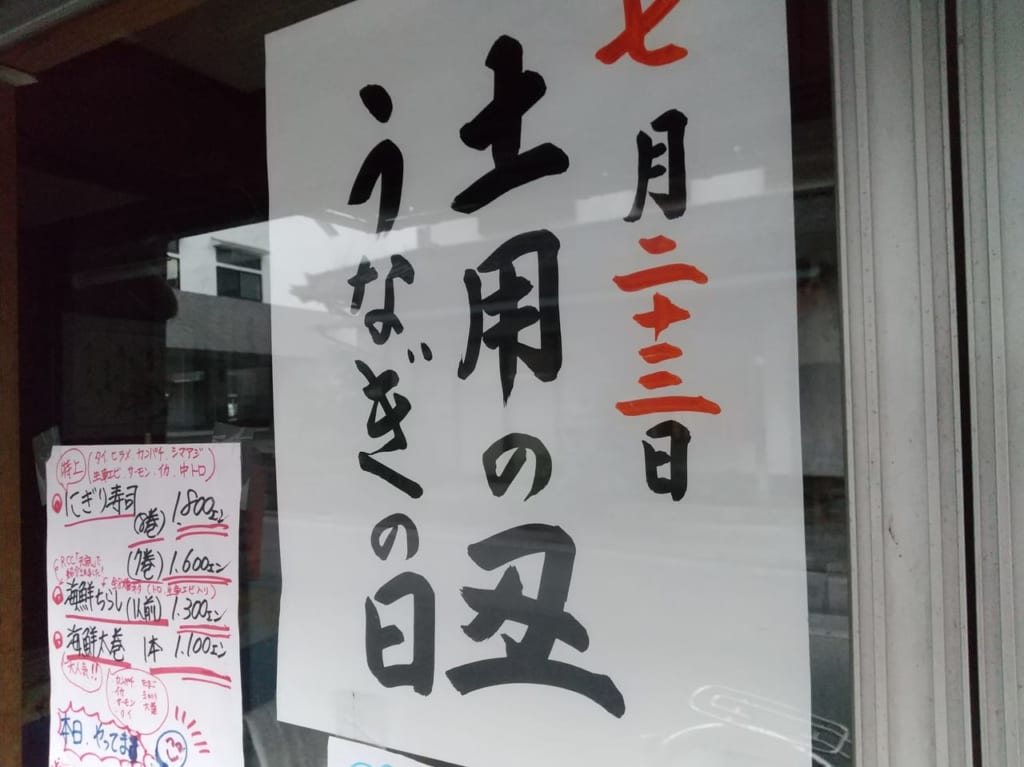 七月二十三日
土用の丑
うなぎの日
特上
(タイ、ヒラメ、カンパチ、シマアジ
生車エビ、サーモン、イカ、中トロ)
にぎり寿司
(8巻) 1.800エン
(7巻) 1.600エン
海鮮ちらし(1人前) 1.300エン
海鮮太巻 1本 1.100エン
大人気!!
カンパチ
イカ
サーモン
タイ
本日、やってます